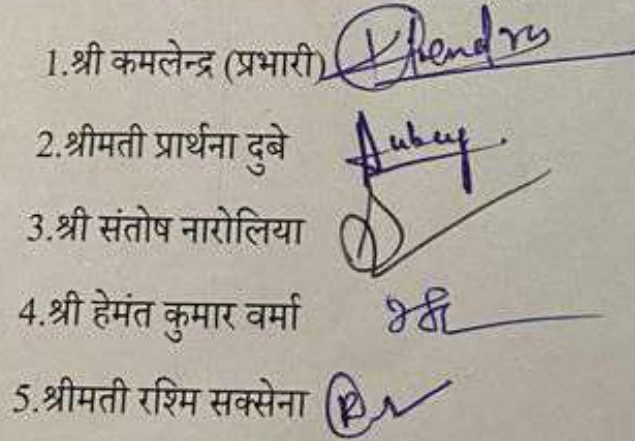 1.श्री कमलेन्द्र (प्रभारी)
2.श्रीमती प्रार्थना दुबे
3.श्री संतोष नारोलिया
4.श्री हेमंत कुमार वर्मा
5.श्रीमती रश्मि सक्सेना